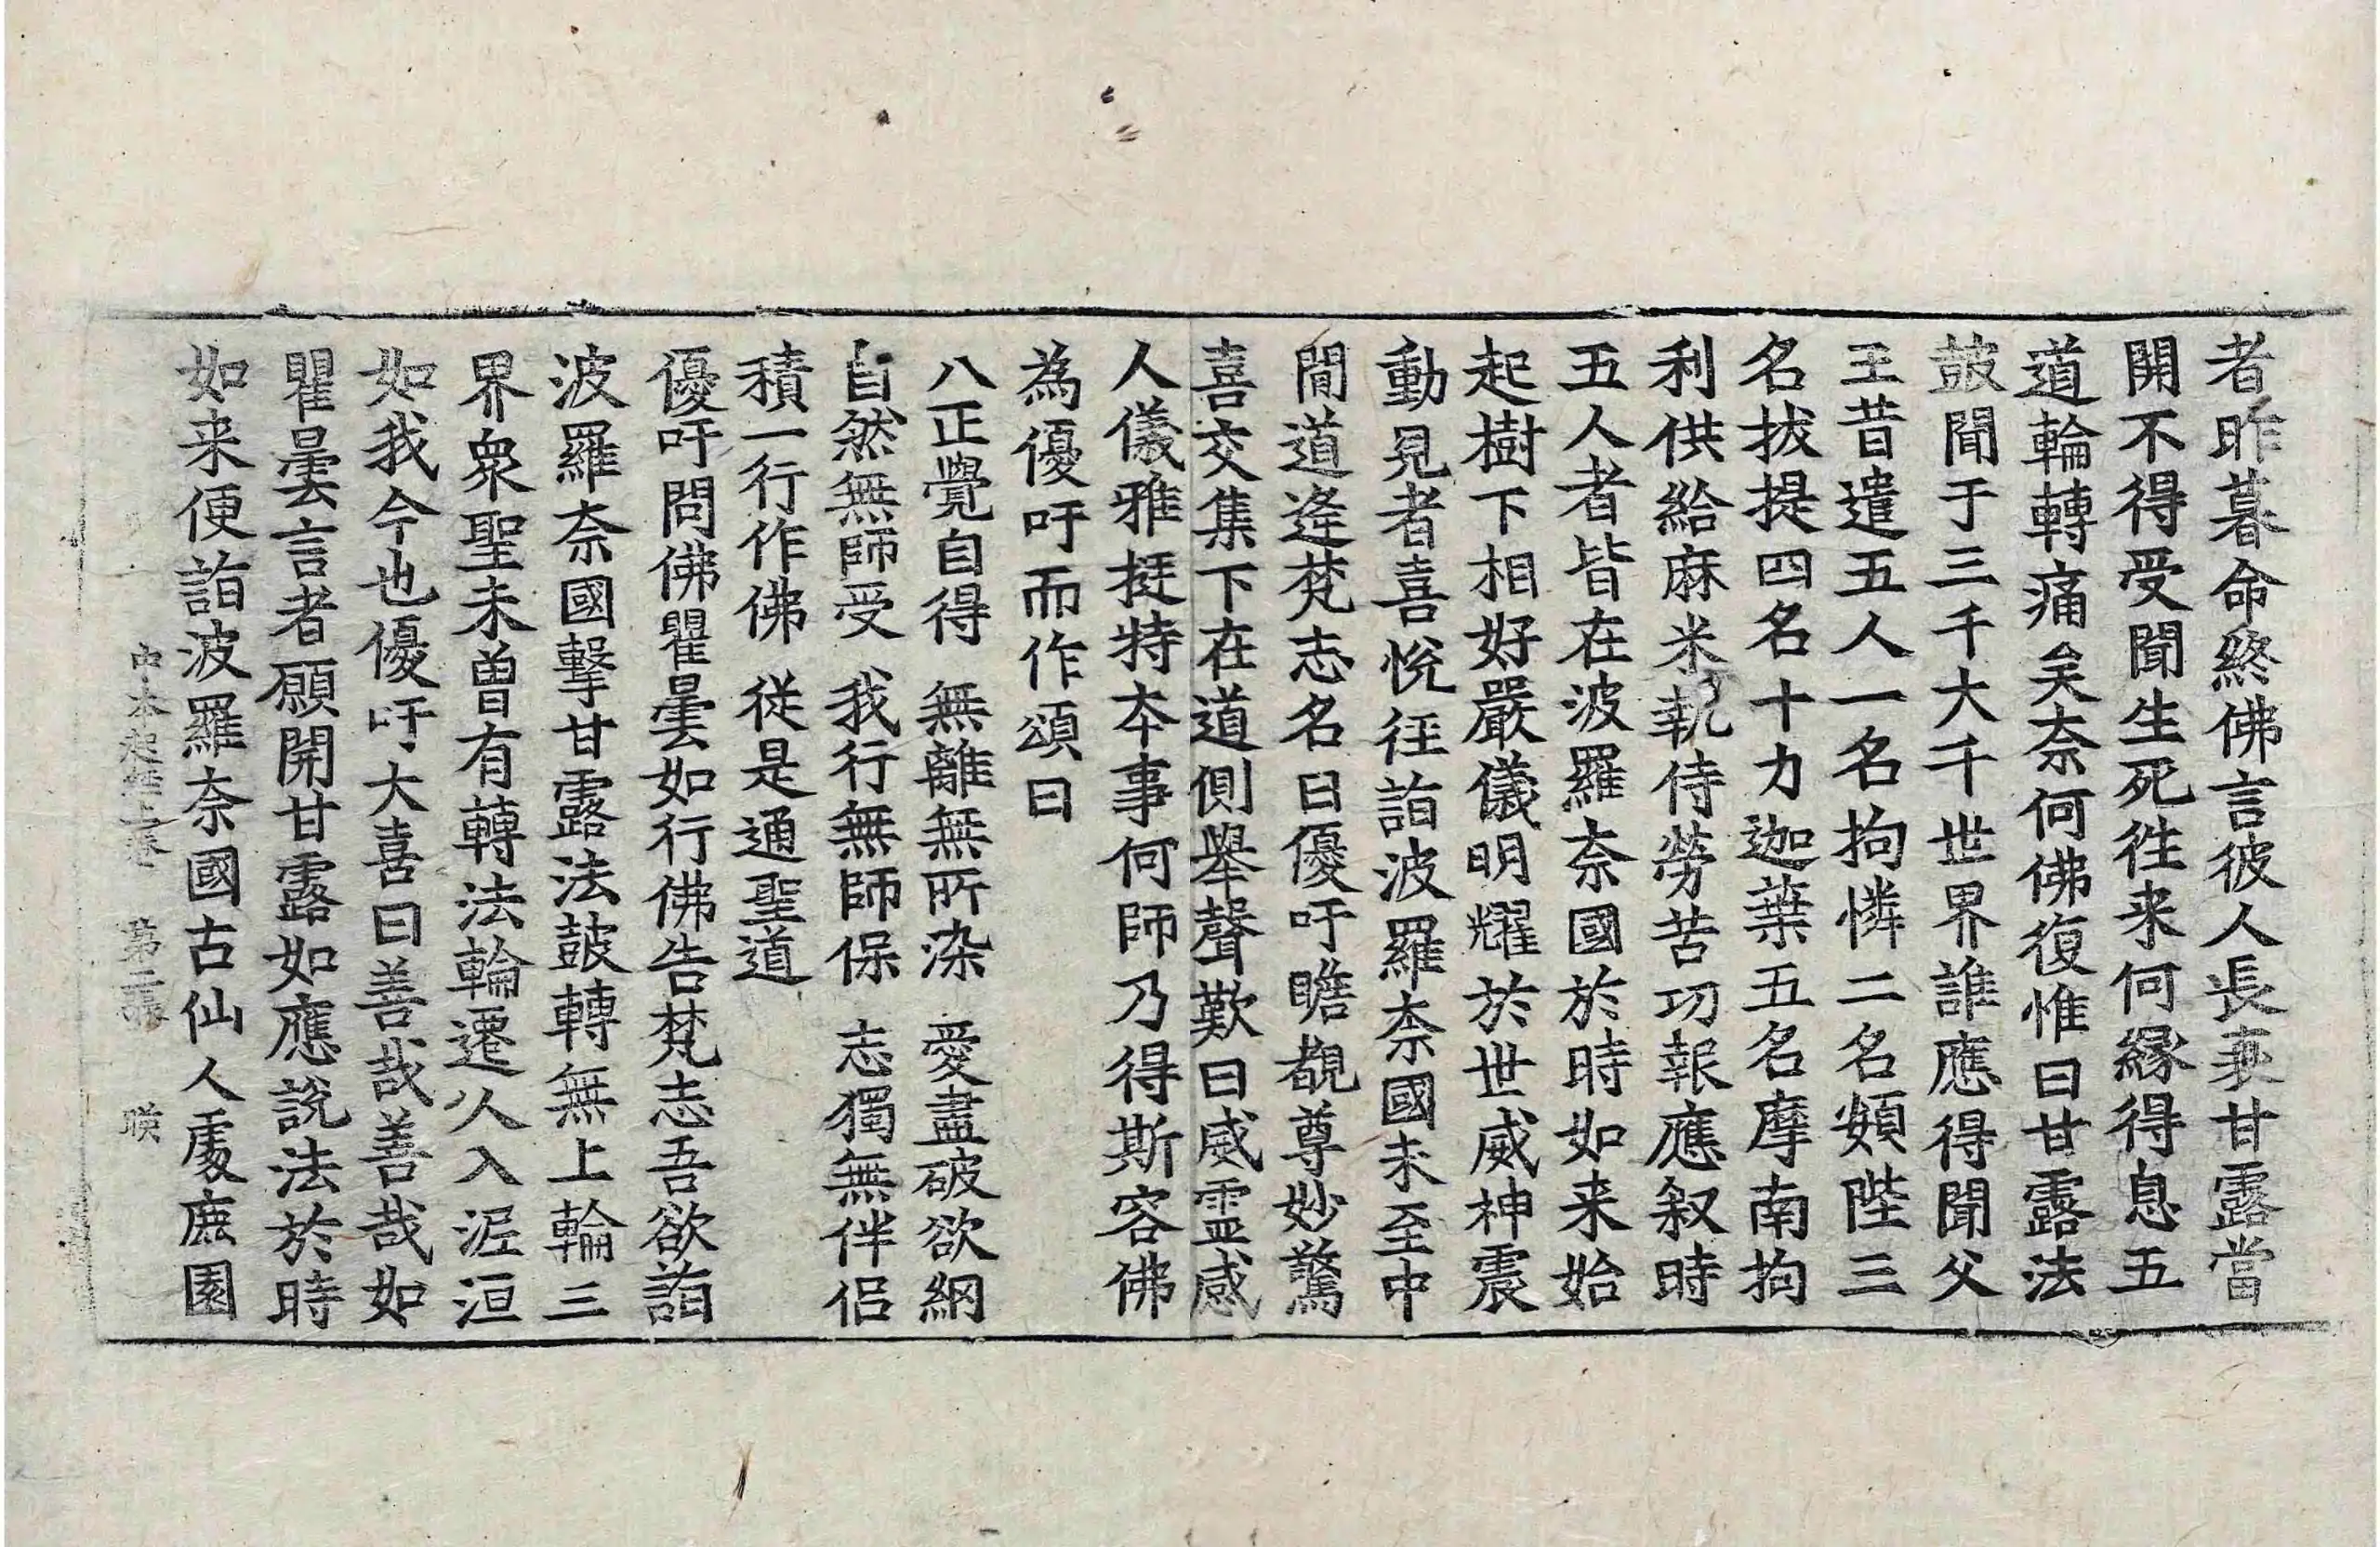 者昨暮命終佛言彼人長衰甘露當
開不得受聞生死徃来何緣得息五
道輪轉痛矣奈何佛復惟曰甘露法
皷聞于三千大千世界誰應得聞父
王昔遣五人一名拘憐二名頞陛三
名拔提四名十力迦葉五名摩南拘
利供給麻米執侍勞苦功報應叙時
五人者皆在波羅奈國於時如来始
起樹下相好嚴儀明耀於世威神震
動見者喜悅徃詣波羅柰國未至中
間道逢梵志名曰優吁瞻覩尊妙驚
喜交集下在道側舉聲歎曰威靈感
人儀雅挺特夲事何師乃得斯容佛
為優吁而作頌曰
八正覺自得　無離無所染　愛盡破欲網
自然無師受　我行無師保　志獨無伴侣
積一行作佛　從是通聖道
優吁問佛瞿曇如行佛告梵志吾欲詣
波羅奈國擊甘露法皷轉無上輪三
界衆聖未曾有轉法輪遷人入泥洹
如我今也優吁大喜曰善哉善哉如
瞿曇言者願開甘露如應說法於時
如来便詣波羅奈國古仙人處鹿園
中本起經上卷　第二張